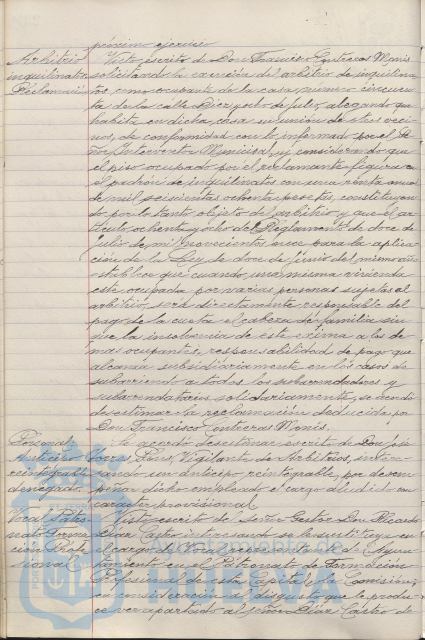 próximo ejercicio
Arbitrio
inquilinato
Reclamación
Visto escrito de Don Francisco Contreras Monis
solicitando la exención del arbitrio de inquilina-
tos como ocupante de la casa número cincuen-
ta de la calle Dieciocho de Julio, alegando que
habita en dicha casa en unión de otros veci-
nos, de conformidad con lo informado por el Se-
ñor Interventor Municipal, y considerando que
el piso ocupado por el reclamante figura en
el padrón de inquilinatos con una renta anual
de mil seiscientas ochenta pesetas, constituyen-
do por lo tanto objeto del arbitrio y que el ar-
tículo ochenta y ocho del Reglamento de doce de
Julio de mil novecientos once para la aplica-
ción de la Ley de doce de Junio del mismo año
establece que cuando una misma vivienda
esté ocupada por varias personas sujetas al
arbitrio, será directamente responsable del
pago de la cuota el cabeza de familia sin
que la insolvencia de éste exima a los de-
mas ocupantes, responsabilidad de pago que
alcanza subsidiariamente en los casos de
subarriendo a todos los subarrendadores y
subarrendatarios solidariamente, se acordó
desestimar la reclamación deducida por
Don Francisco Contreras Monis.
Personal
Anticipo
reintegrable
denegado.
Se acordó desestimar escrito de Don José
Vigilante de Arbitrios, intere-
sando un anticipo reintegrable, por desem-
peñar dicho empleado el cargo aludido con
carácter provisional
Vocal Patro-
nato Forma-
ción Profe-
sional
Visto escrito de Señor Gestor Don Ricardo
Díaz Castro interesando se le sustituya en
el cargo de Vocal representante del Ayun-
tamiento en el Patronato de Formación
Profesional de esta Capital, la Comisión,
en consideración al disgusto que le produ-
ce ver apartado al Señor Díaz Castro de
Ayuntamiento de